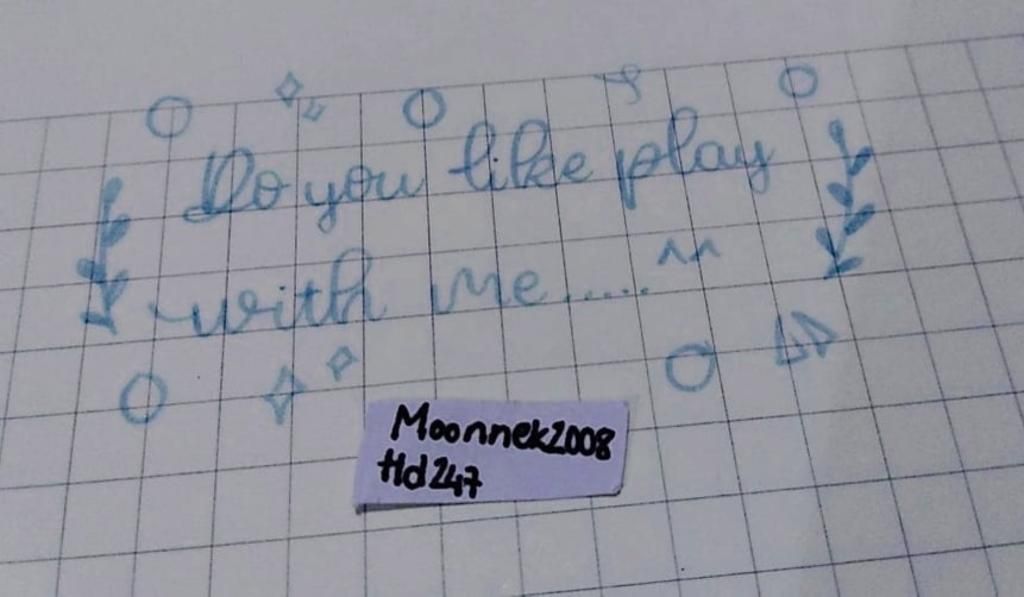 Do you like play
with me..... ^^
Moonnek2008
Hd247